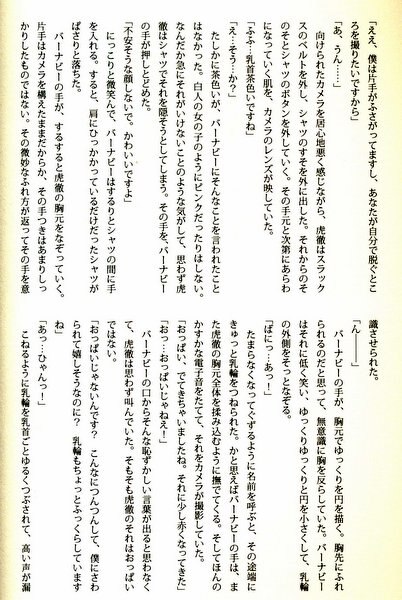 「ええ、僕は片手がふさがってますし、あなたが自分で脱ぐとこ
ろを撮りたいですから」
「あ、うん……」
向けられたカメラを居心地悪く感じながら、虎徹はスラック
スのベルトを外し、シャツのすそを外に出した。それからのそ
のそとシャツのボタンを外していく。その手元と次第にあらわ
になっていく肌を、カメラのレンズが映していた。
「ふふ…乳首茶色いですね」
「え…そう…か？」
たしかに茶色いが、バーナビーにそんなことを言われたこと
はなかった。白人の女の子のようにピンクだったりはしない。
なんだか急にそれがいけないことのような気がして、思わず虎
徹はシャツでそれを隠そうとしてしまう。その手を、バーナビー
の手が押しとどめた。
「不安そうな顔しないで。かわいいですよ」
にっこりと微笑んで、バーナビーはするりとシャツの間に手
を入れる。すると、肩にひっかかっているだけだったシャツが
ぱさりと落ちた。
バーナビーの手が、するすると虎徹の胸元をなぞっていく。
片手はカメラを構えたままだからか、その手つきはあまりしっ
かりしたものではない。その微妙なふれ方が返ってその手を意
識させられた。
「ん――」
バーナビーの手が、胸元でゆっくりを円を描く。胸先にふれ
られるのだと思って、無意識に胸を反らしていた。バーナビー
はそれに低く笑い、ゆっくりゆっくりと円を小さくして、乳輪
の外側をそっとなぞる。
「ばにぃ…あっ！」
たまらなくなってぐずるように名前を呼ぶと、その途端に
きゅっと乳輪をつねられた。かと思えばバーナビーの手は、ま
た虎徹の胸元全体を揉み込むように撫でてくる。そしてほんの
かすかな電子音をたてて、それをカメラが撮影していた。
「おっぱい、でてきちゃいましたね。それに少し赤くなってきた」
「おっ…おっぱいじゃねえ！」
バーナビーの口からそんな恥ずかしい言葉が出ると思わなく
て、虎徹は思わず叫んでいた。そもそも虎徹のそれはおっぱい
ではない。
「おっぱいじゃないんです？　こんなにつんつんして、僕にさわ
られて嬉しそうなのに？　乳輪もちょっとふっくらしています
ね」
「あっ…ひゃんっ！」
こねるように乳輪を乳首ごとゆるくつぶされて、高い声が漏